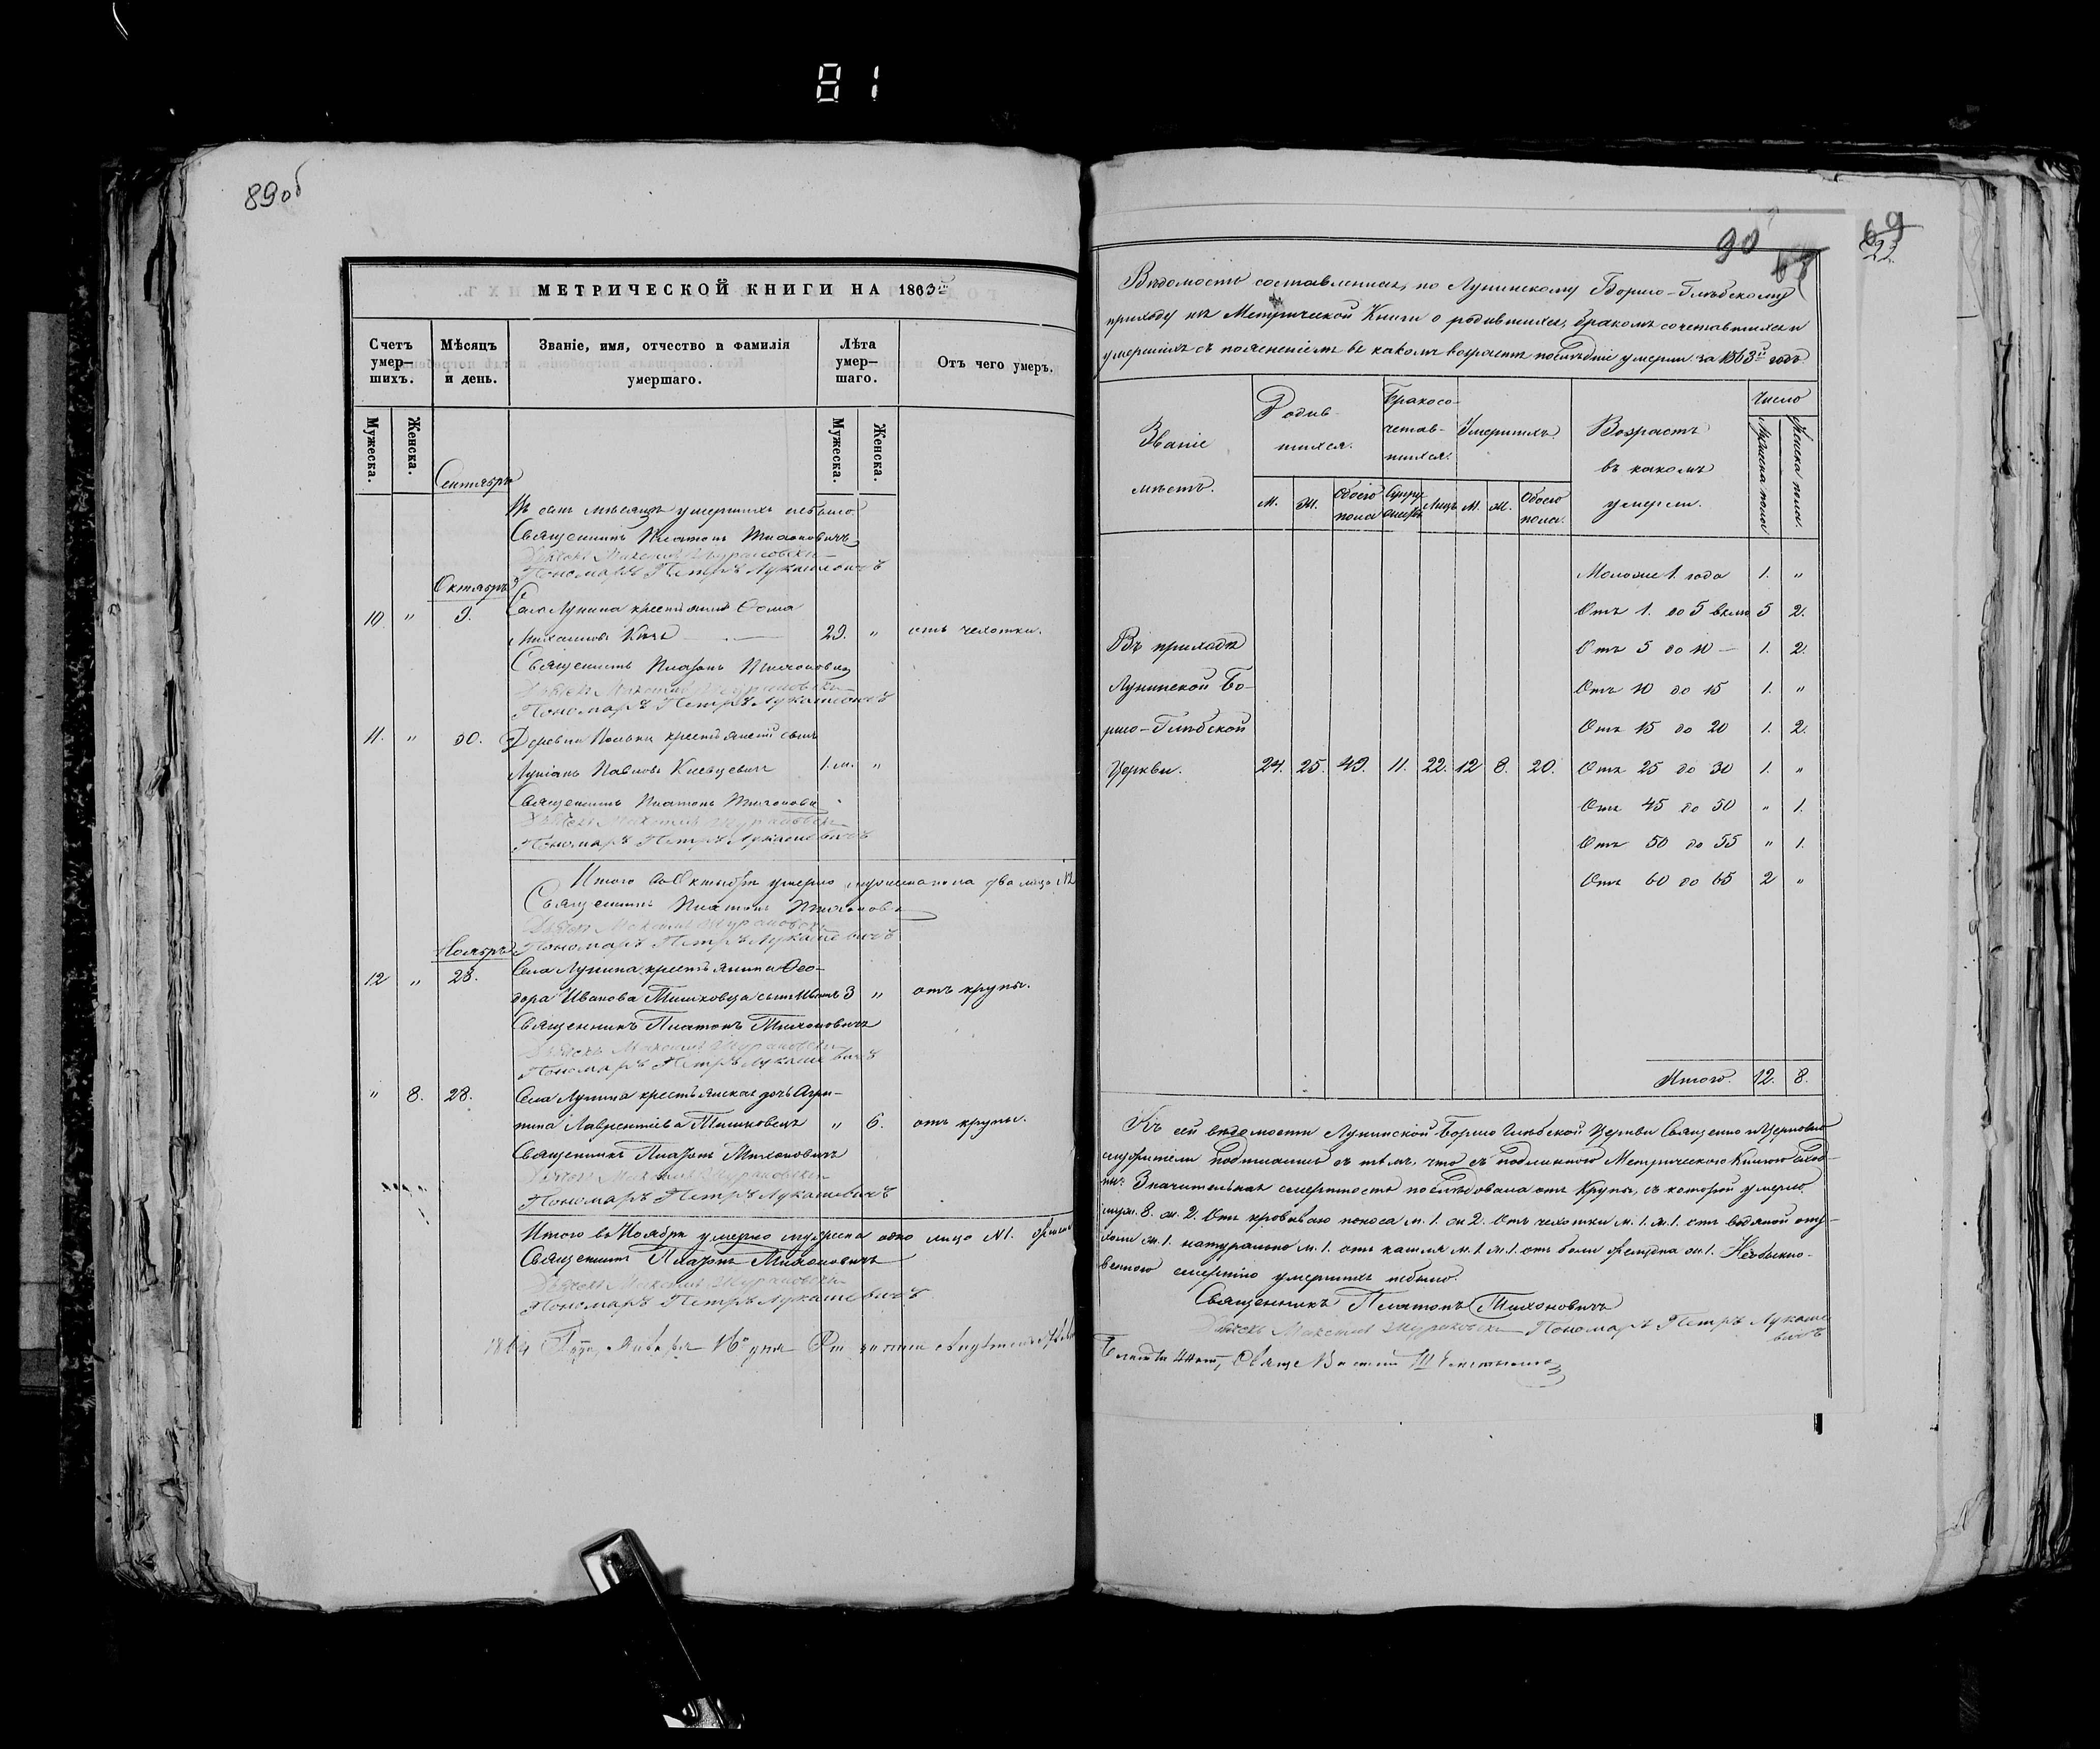 81
89об
МЕТРИЧЕСКОЙ КНИГИ НА 1863й
Счетъ умер- шихъ.
Мѣсяцъ и день.
Званіе, имя, отчество и фамилія умершаго.
Лѣта умер- шаго.
Отъ чего умеръ.
Мужеска.
Женска.
Мужеска.
Женска.
Сентябрь
Въ семъ мѣсяцѣ умершихъ небыло.
Священникъ Платонъ Тихоновичъ
Дьячекъ Максимъ Жураковскій
Пономарь Петръ Лукашевичъ
Октябрь
10 " 9. Села Лунина крестьянинъ Ѳома
29. " отъ чехотки.
Священникъ Платонъ Тихоновичъ
Дьячекъ Максимъ Жураковскій
Пономарь Петръ Лукашевичъ
11. " 30. Деревни крестьянскій сынъ
Лукіанъ Павловъ 1.м. "
Священникъ Платонъ Тихоновичъ
Дьячекъ Максимъ Жураковскій
Пономарь Петръ Лукашевичъ
Итого въ Октябрѣ умерло мужеска пола два лица №2
Священникъ Платонъ Тихоновичъ
Дьячекъ Максимъ Жураковскій
Пономарь Петръ Лукашевичъ
Ноябрь
12 " 23. Села Лунина крестьянина Ѳео-
дора Иванова Тишковца сынъ 3 " отъ крупы.
Священникъ Платонъ Тихоновичъ
Дьячекъ Максимъ Жураковскій
Пономарь Петръ Лукашевичъ
" 8. 28. Села Лунина крестьянская дочь Агри-
пина Лаврентіева Тишковецъ " 6. отъ крупы.
Священникъ Платонъ Тихоновичъ
Дьячекъ Максимъ Жураковскій
Пономарь Петръ Лукашевичъ
Итого въ Ноябрѣ умерло мужеска одно лицо №1.
Священникъ Платонъ Тихоновичъ
Дьячекъ Максимъ Жураковскій
Пономарь Петръ Лукашевичъ
1864 Года, Января 16 дня
90
69
Вѣдомость составленная, по Лунинскому Борисо-Глѣбскому
приходу изъ Метрической Книги о родившихся, бракомъ сочетавшихся и
умершихъ съ поясненіемъ въ какомъ возрастѣ послѣдніе умерли за 1863й годъ
Званіе мѣстъ.
Родив- шихся.
Бракосо- четав- шихся.
Умершихъ.
Возрастъ въ какомъ умерли.
Число
Мужеска пола
Женска пола.
М. Ж. Обоего пола Супру жествъ Лицъ М. Ж. Обоего пола.
Моложе 1. года 1. "
Отъ 1. до 5 вклю 5 2.
Въ приходѣ Отъ 5 до 10 — 1. 2.
Лунинской Бо- Отъ 10 до 15 1. "
рисо-Глѣбской Отъ 15 до 20 1. 2.
Церкви. 24. 25. 49. 11. 22. 12 8. 20. Отъ 25 до 30 1. "
Отъ 45 до 50 " 1.
Отъ 50 до 55 " 1.
Отъ 60 до 65 2 "
Итого. 12. 8.
Къ сей вѣдомости Лунинской Борисо Глѣбской Церкви Священно и Церковно
служители подписались съ тѣмъ, что съ подлинною Метрическою Книгою сход-
на. Значительная смертность послѣдовала отъ Крупы, съ которой умерло
муж. 8. ж. 2. Отъ кроваваго поноса м. 1. ж 2. Отъ чехотки м. 1. ж. 1. отъ водяной опу-
холи ж. 1. натурально м. 1. отъ кашля м. 1. ж. 1. отъ боли желудка ж. 1. Необыкно-
венною смертію умершихъ небыло.
Священникъ Платонъ Тихоновичъ
Дьячекъ Максимъ Жураковскій Пономарь Петръ Лукаше
вичъ